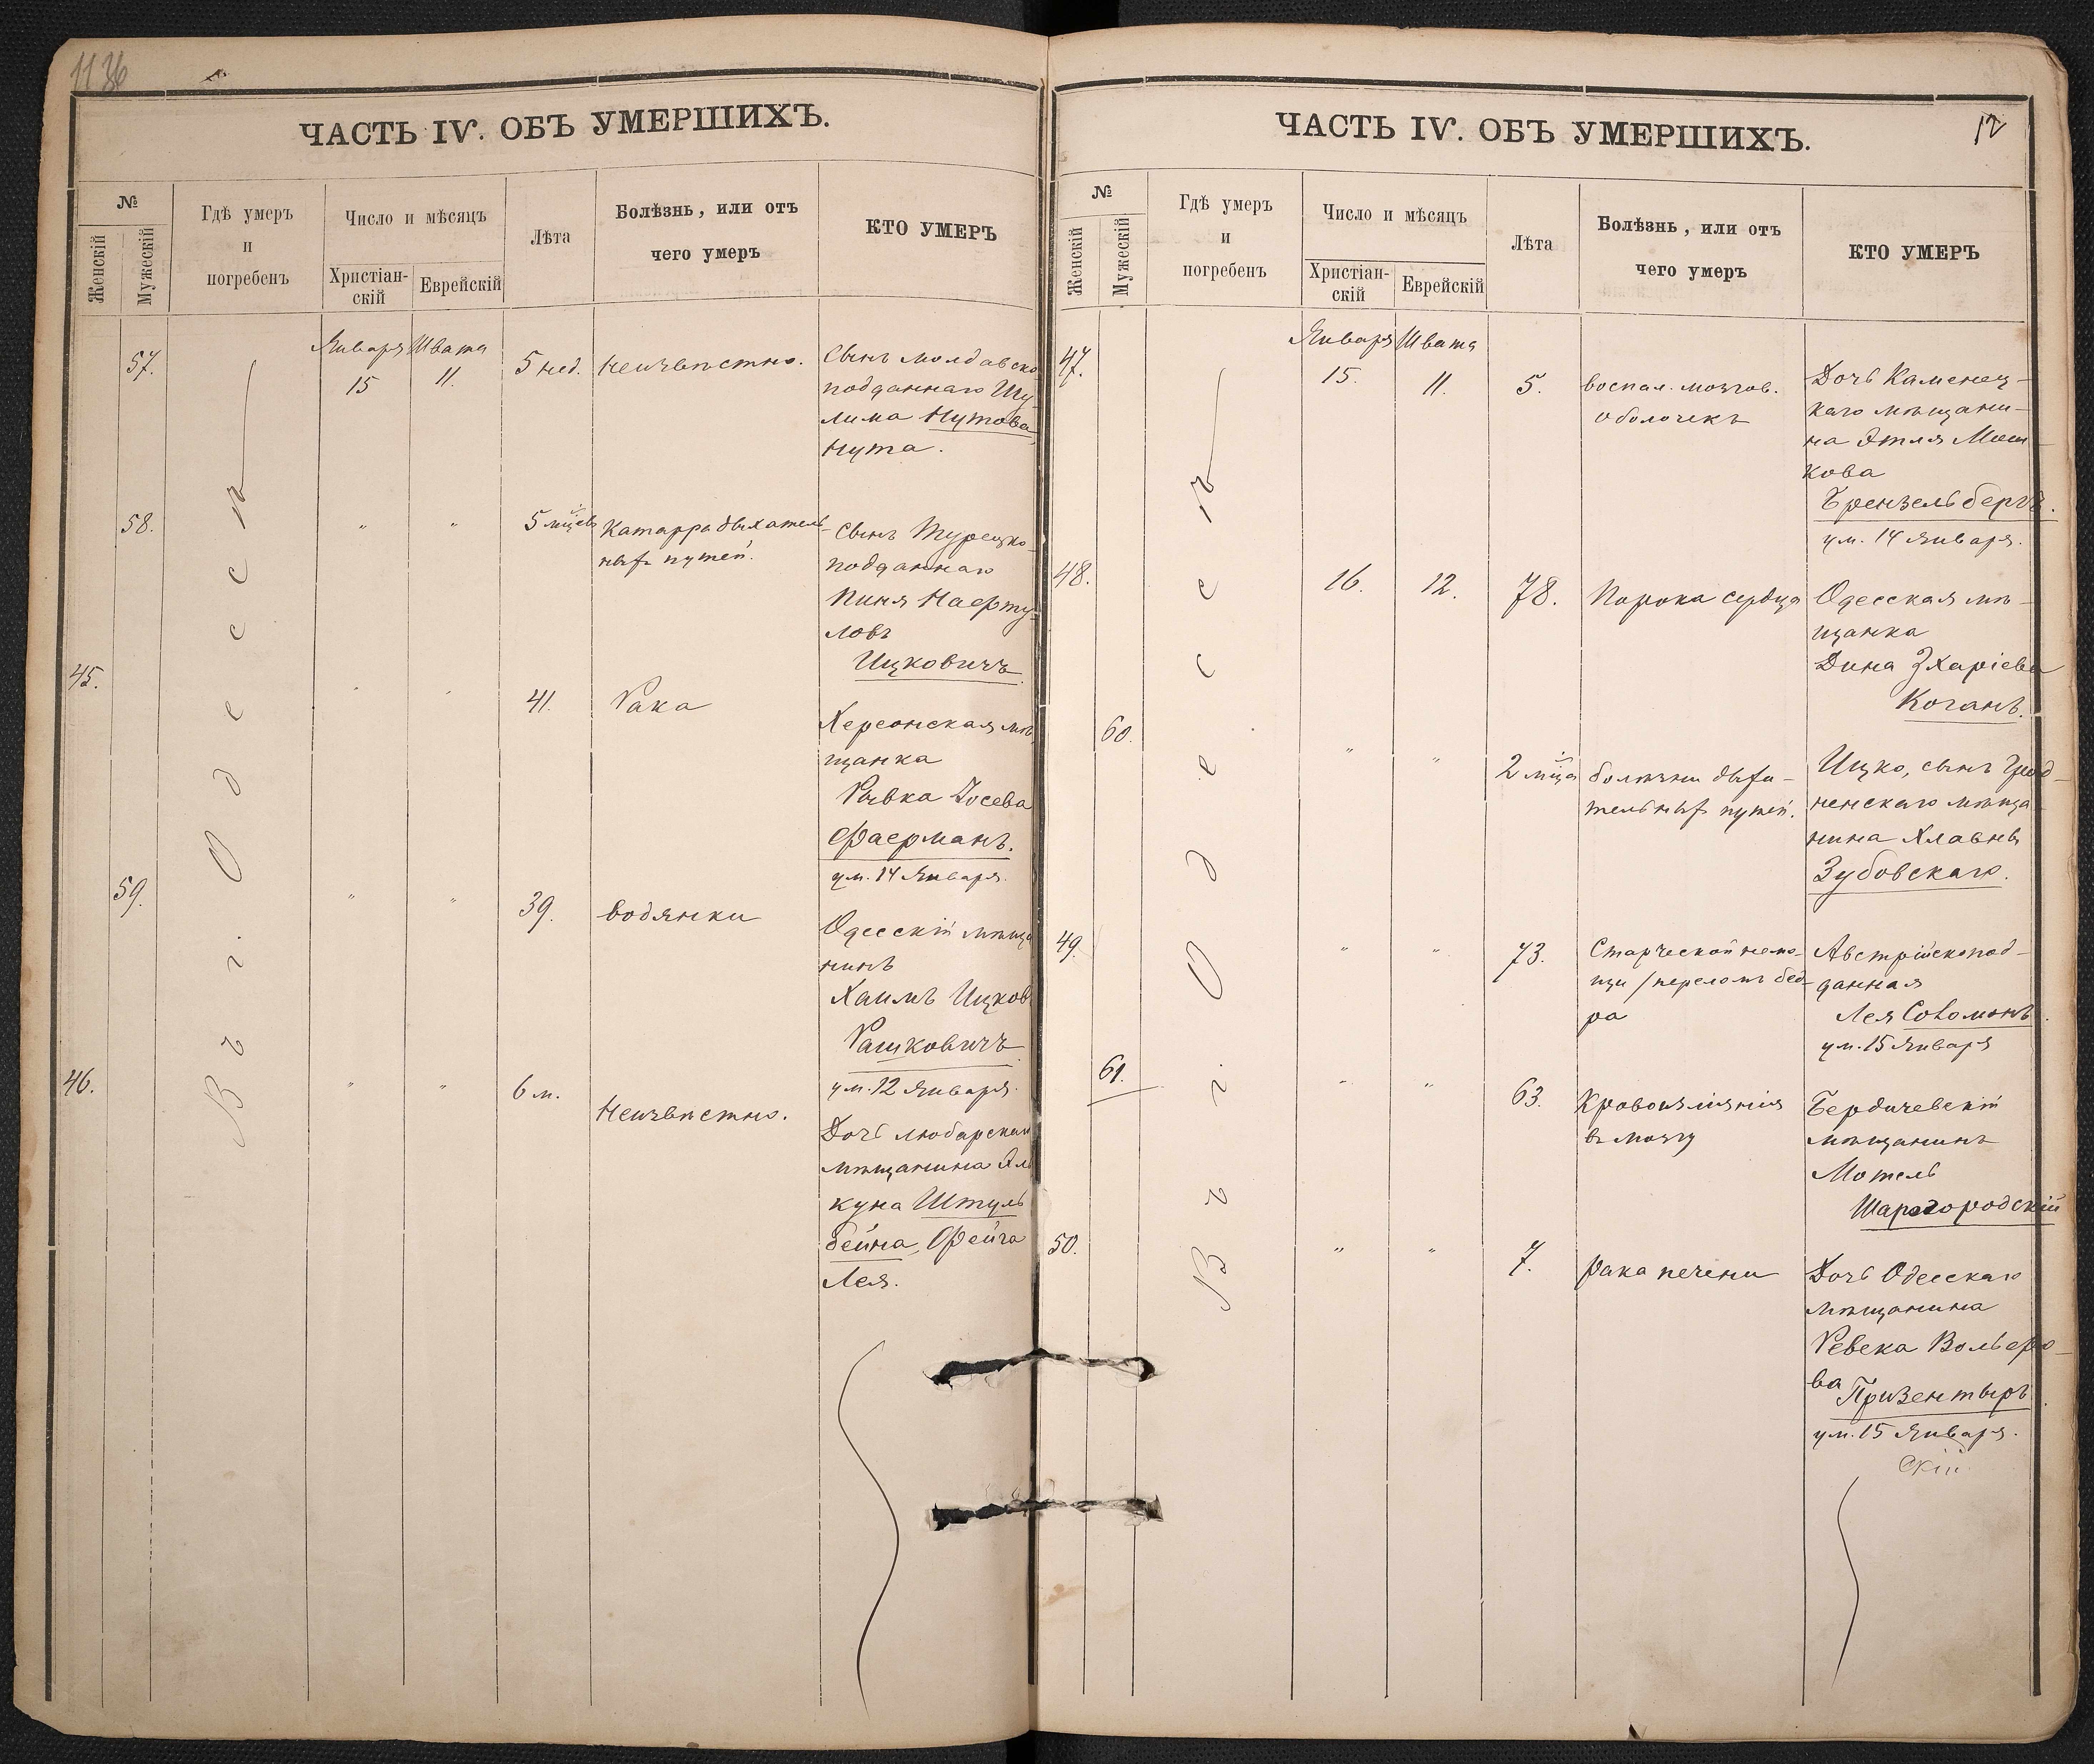 1136
ЧАСТЬ IV. ОБЪ УМЕРШИХЪ.
№
Женскій
Мужескій
Гдѣ умеръ
и
погребенъ
Число и мѣсяцъ
Христіан-
скій
Еврейскій
Лѣта
Болѣзнь, или отъ
чего умеръ
КТО УМЕРЪ
Въ г. Одессѣ
57.
Января
15
Швата
11.
5 нед.
Неизвѣстно.
Сынъ молдавско
подданнаго Шу
лима Нутова
Нута.
58.
"
"
5 мѣсцевъ
Катарра дыхатель-
ныхъ путей.
Сынъ Турецко-
подданнаго
Пиня Нафту-
ловъ
Ицковичъ.
45.
"
"
41.
Рака
Херсонская мѣ
щанка
Рывка Іосева
Фаерманъ.
ум. 14 Января.
59.
"
"
39.
водянки
Одесскій мѣща
нинъ
Хаимъ Ицков
Рашковичъ.
ум. 12 Января.
46.
"
"
6 м.
Неизвѣстно.
Дочь любарскаго
мѣщанина
куна Штуль
бейна, Фейга
Лея.
12
ЧАСТЬ IV. ОБЪ УМЕРШИХЪ.
№
Женскій
Мужескій
Гдѣ умеръ
и
погребенъ
Число и мѣсяцъ
Христіан-
скій
Еврейскій
Лѣта
Болѣзнь, или отъ
чего умеръ
КТО УМЕРЪ
Въ г. Одессѣ
47.
Января
15.
Швата
11.
5.
воспал. мозгов.
оболочекъ
Дочь Каменец-
каго мѣщани-
на Этля Мош-
кова
Брензельбергъ.
ум. 14 Января.
48.
16.
12.
78.
Порока сердца
Одесская мѣ-
щанка
Дина Зхаріева
Коганъ.
60.
"
"
2 мѣца
болѣзни дыха-
тельныхъ путей.
Ицко, сынъ Грод-
ненскаго мѣща-
нина Хлавны
Зубовскаго.
49.
"
"
73.
Старческой немо-
щи /переломъ бед-
ра
Австрійскопод-
данная
Лея Соломонъ.
ум. 15 Января
61.
"
"
63.
Кровоизліянія
въ мозгу
Бердичевскій
мѣщанинъ
Мотель
Шаргородскій
50.
"
"
7.
рака печени
Дочь Одесскаго
мѣщанина
Ревека Вольфо-
ва Призентыръ.
ум. 15 Января.
скій